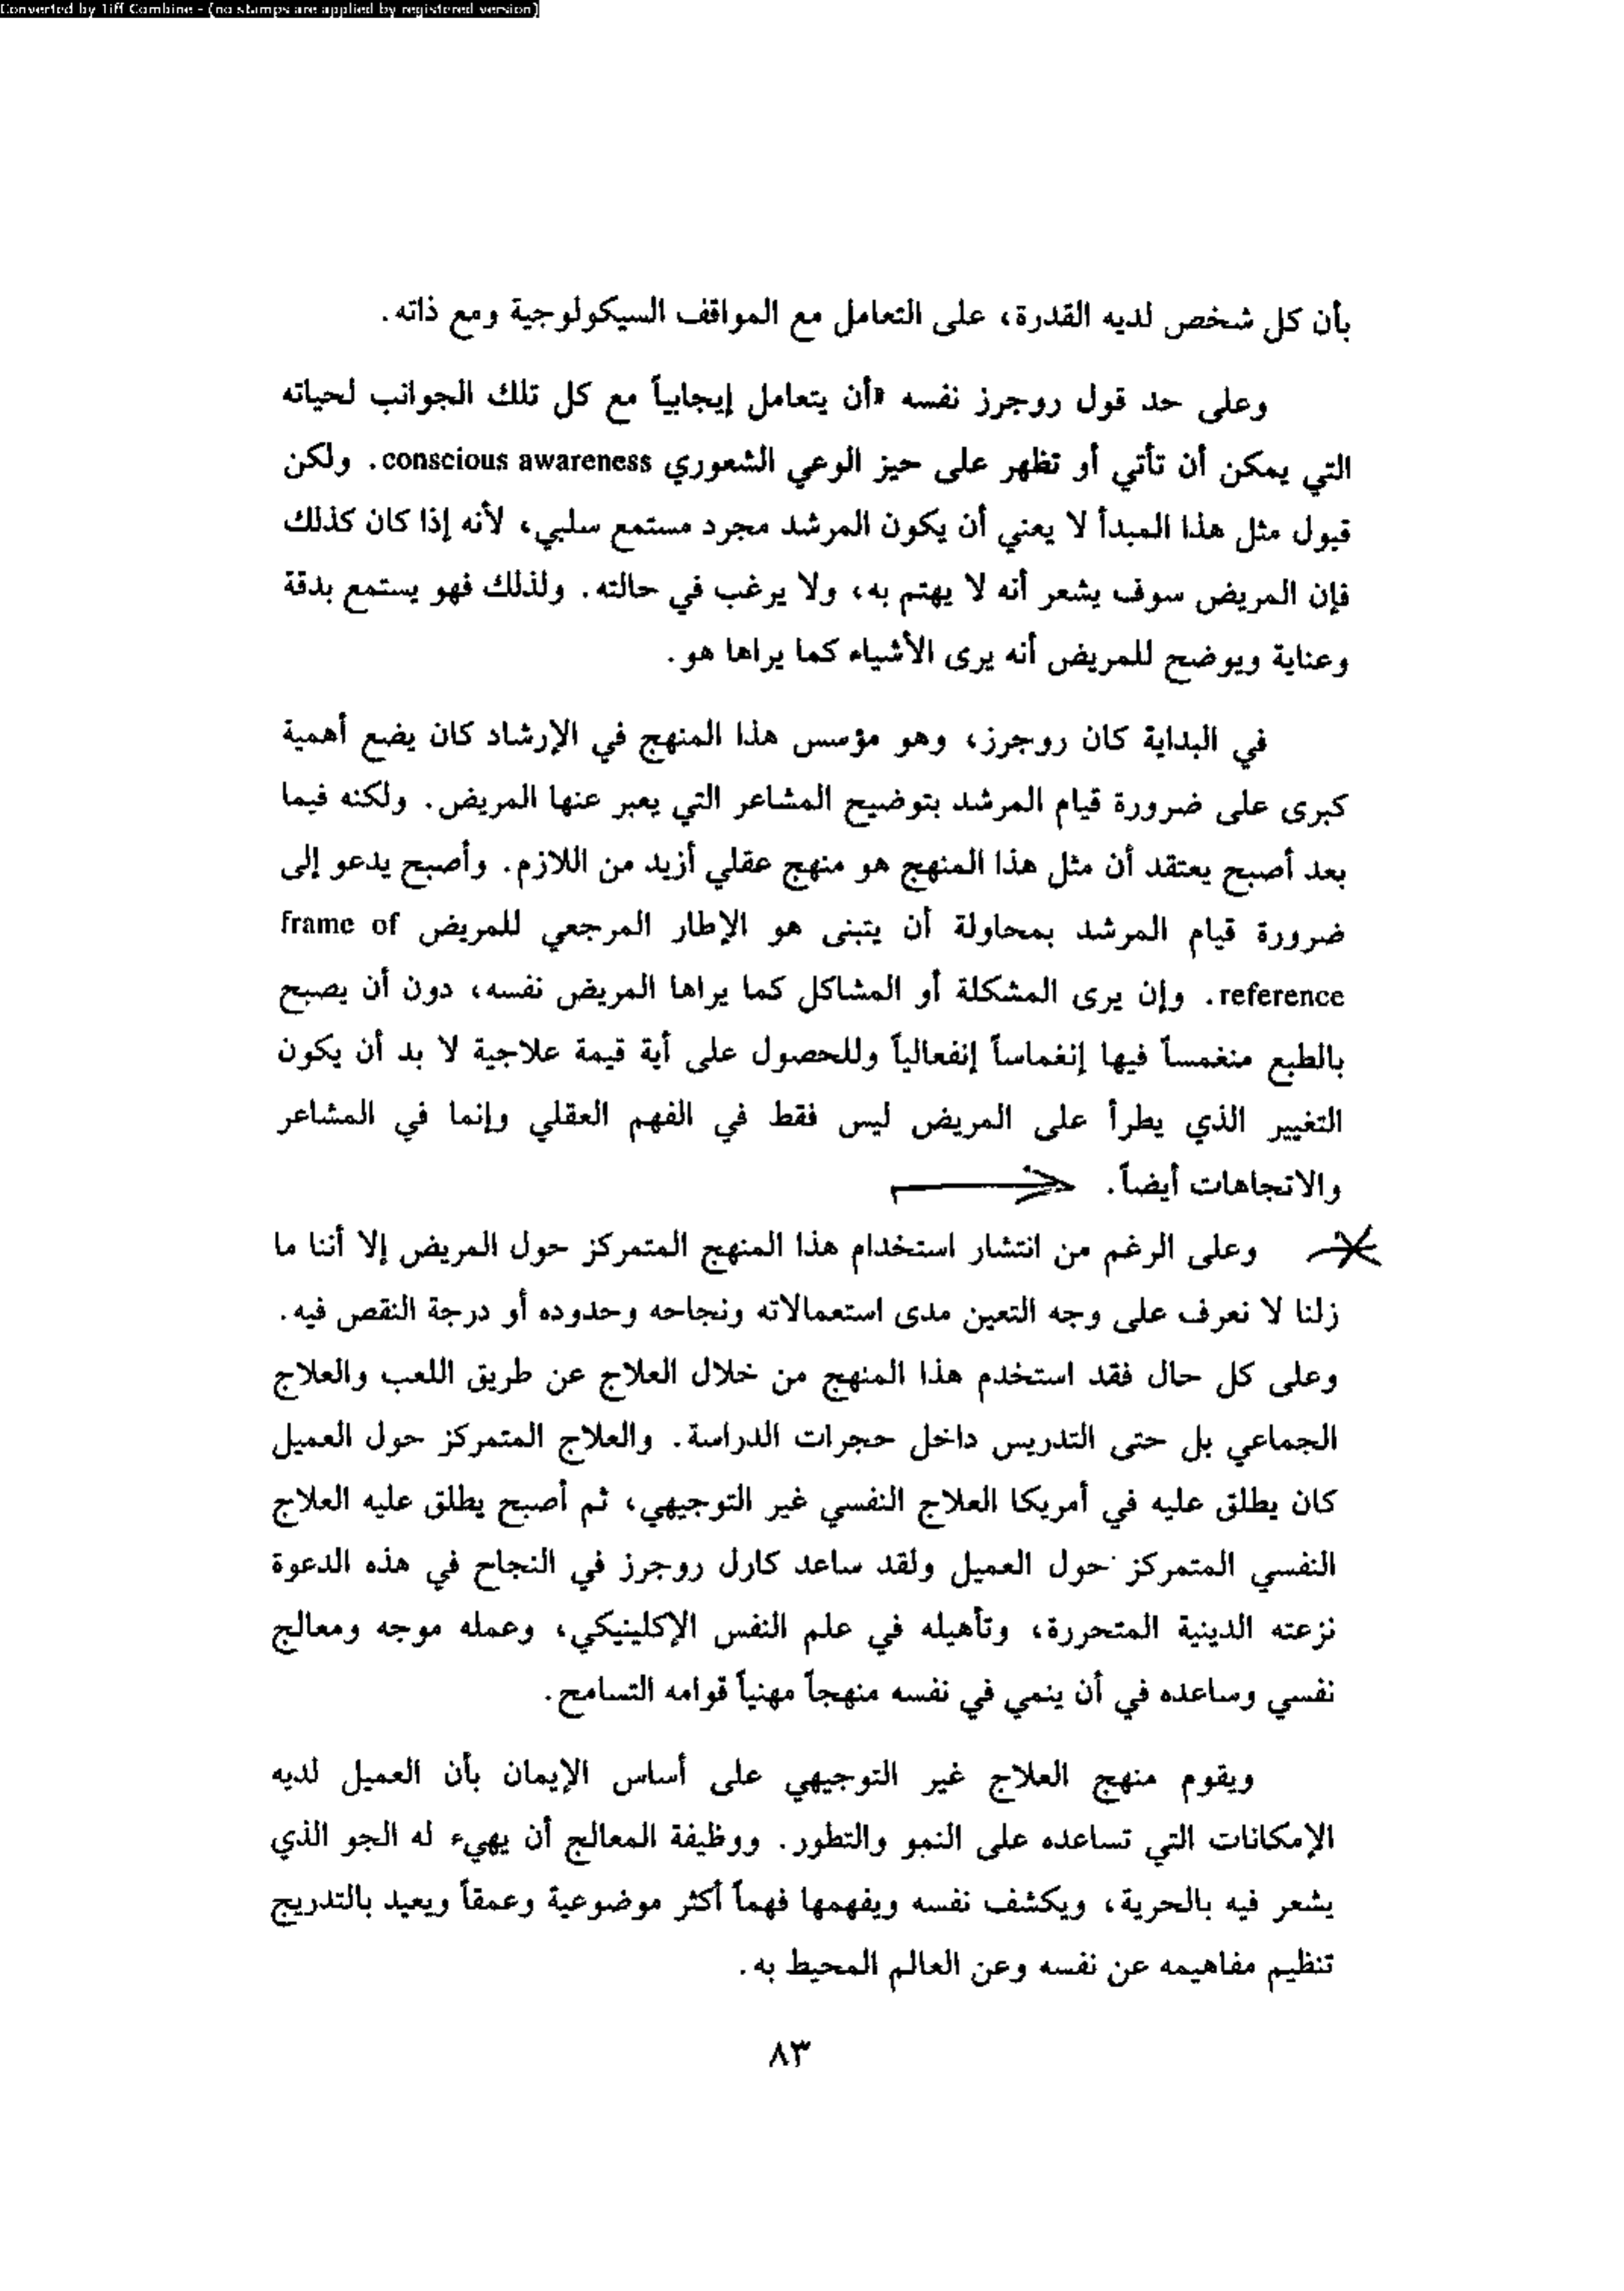 Converted by Tiff Combine - (no stamps are applied by registered version)
بأن كل شخص لديه القدرة، على التعامل مع المواقف السيكولوجية ومع ذاته.
وعلى حد قول روجرز نفسه «أن يتعامل إيجابياً مع كل تلك الجوانب لحياته
التي يمكن أن تأتي أو تظهر على حيز الوعي الشعوري conscious awareness. ولكن
قبول مثل هذا المبدأ لا يعني أن يكون المرشد مجرد مستمع سلبي، لأنه إذا كان كذلك
فإن المريض سوف يشعر أنه لا يهتم به، ولا يرغب في حالته. ولذلك فهو يستمع بدقة
وعناية ويوضح للمريض أنه يرى الأشياء كما يراها هو.
في البداية كان روجرز، وهو مؤسس هذا المنهج في الإرشاد كان يضع أهمية
كبرى على ضرورة قيام المرشد بتوضيح المشاعر التي يعبر عنها المريض. ولكنه فيما
بعد أصبح يعتقد أن مثل هذا المنهج هو منهج عقلي أزيد من اللازم. وأصبح يدعو إلى
ضرورة قيام المرشد بمحاولة أن يتبنى هو الإطار المرجعي للمريض frame of
reference. وإن يرى المشكلة أو المشاكل كما يراها المريض نفسه، دون أن يصبح
بالطبع منغمساً فيها إنغماساً إنفعالياً وللحصول على أية قيمة علاجية لا بد أن يكون
التغيير الذي يطرأ على المريض ليس فقط في الفهم العقلي وإنما في المشاعر
والاتجاهات أيضاً.
وعلى الرغم من انتشار استخدام هذا المنهج المتمركز حول المريض إلا أننا ما
زلنا لا نعرف على وجه التعين مدى استعمالاته ونجاحه وحدوده أو درجة النقص فيه.
وعلى كل حال فقد استخدم هذا المنهج من خلال العلاج عن طريق اللعب والعلاج
الجماعي بل حتى التدريس داخل حجرات الدراسة. والعلاج المتمركز حول العميل
كان يطلق عليه في أمريكا العلاج النفسي غير التوجيهي، ثم أصبح يطلق عليه العلاج
النفسي المتمركز حول العميل ولقد ساعد كارل روجرز في النجاح في هذه الدعوة
نزعته الدينية المتحررة، وتأهيله في علم النفس الإكلينيكي، وعمله موجه ومعالج
نفسي وساعده في أن ينمي في نفسه منهجاً مهنياً قوامه التسامح.
ويقوم منهج العلاج غير التوجيهي على أساس الإيمان بأن العميل لديه
الإمكانات التي تساعده على النمو والتطور. ووظيفة المعالج أن يهيء له الجو الذي
يشعر فيه بالحرية، ويكشف نفسه ويفهمها فهماً أكثر موضوعية وعمقاً ويعيد بالتدريج
تنظيم مفاهيمه عن نفسه وعن العالم المحيط به.
٨٣